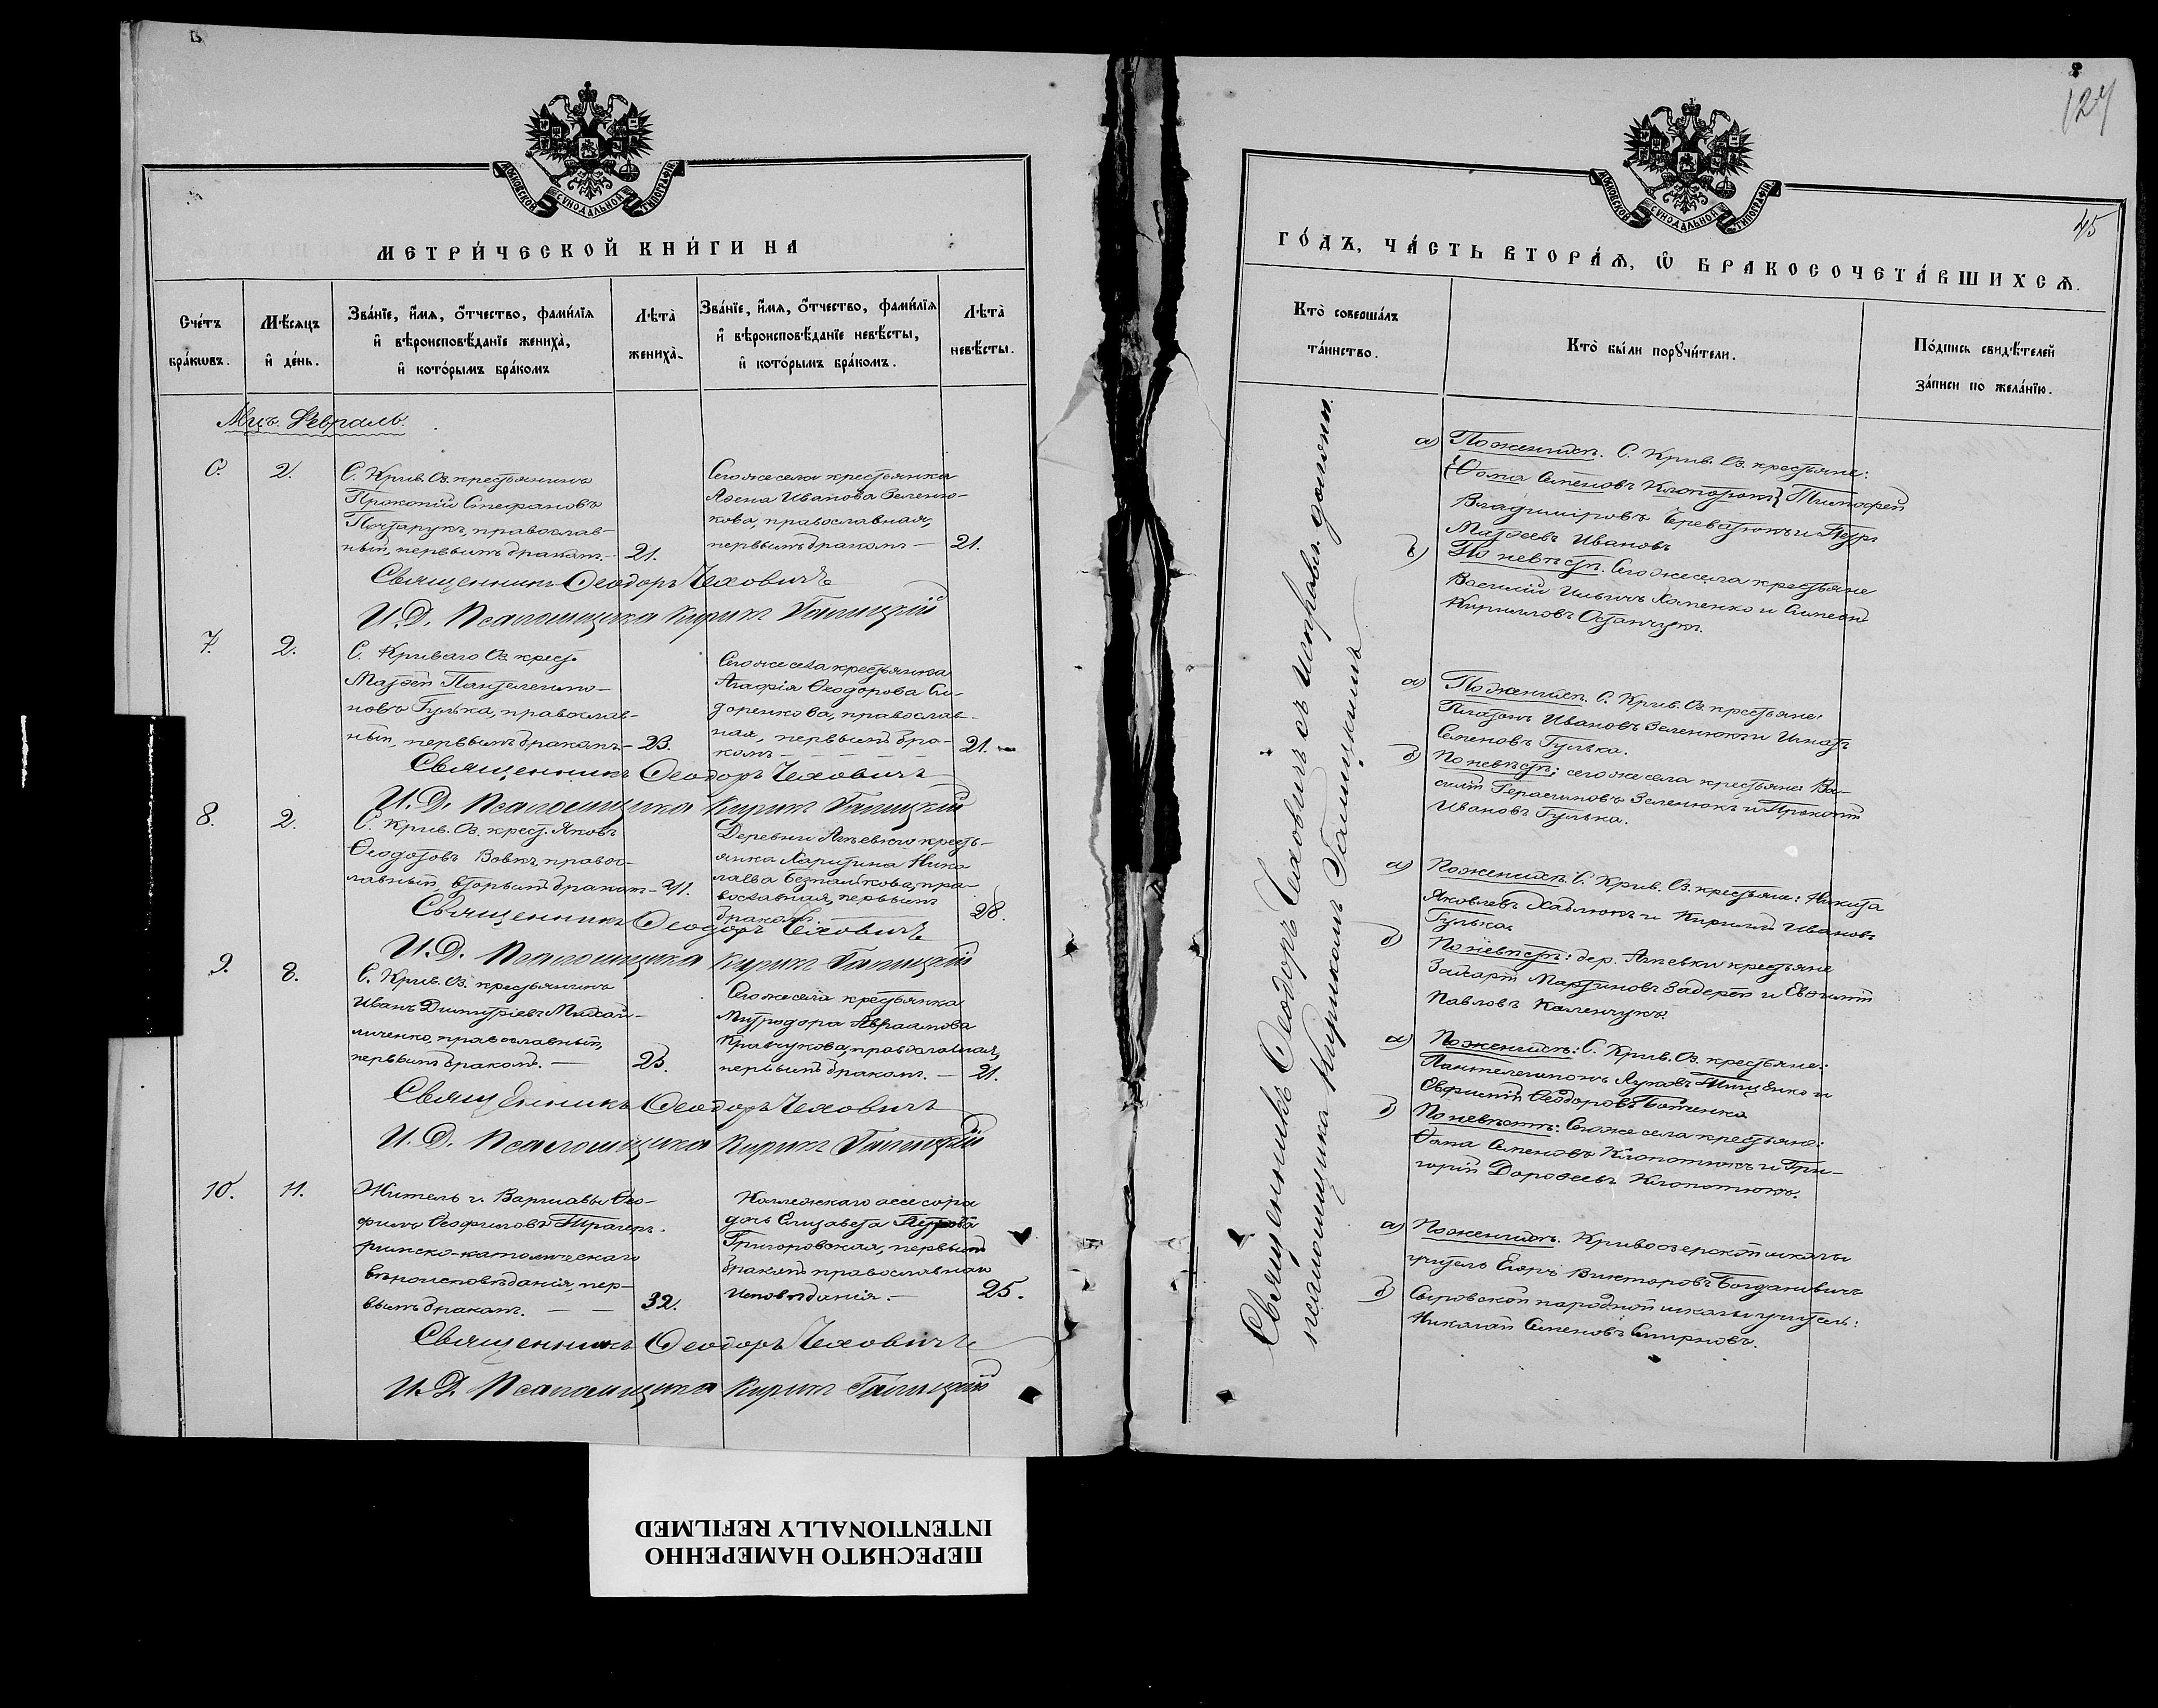 127
45
МОСКОВСКОЙ СѴНОДАЛЬНОЙ ТИПОГРАФІИ
МЕТРИ́ЧЕСКОЙ КНИ́ГИ НА
Сче́тъ бра́кѡвъ.
Мѣ́сяцъ и҆ де́нь.
Зва́нїе, и҆́мя, ѻ҆́тчество, фами́лїя и҆ вѣроисповѣ́данїе жениха̀, и҆ кото́рымъ бра́комъ
Лѣта̀ жениха̀.
Зва́нїе, и҆́мя, ѻ҆́тчество, фами́лїя и҆ вѣроисповѣ́данїе невѣ́сты, и҆ кото́рымъ бра́комъ.
Лѣта̀ невѣ́сты.
Мцъ. Февраль.
6. 2.
С. Крив. Оз. крестьянинъ
Прокопій Стефановъ
православ-
ный, первымъ бракомъ. — 21.
Сегоже села крестьянка
Иванова Зеленю-
кова, православная,
первымъ бракомъ — 21.
Священникъ Ѳеодоръ Чеховичъ
И. Д. Псаломщика Кирикъ Галицкій
7. 2.
С. Криваго Оз. крест.
Матѳей Пантелеимо-
новъ Гулька, православ-
ный, первымъ бракомъ. — 23.
Сегоже села крестьянка
Агафія Ѳеодорова Си-
доренкова, православ-
ная, первымъ бра-
комъ — 21. —
Священникъ Ѳеодоръ Чеховичъ
И. Д. Псаломщика Кирикъ Галицкій
8. 2.
С. Крив. Оз. крест. Яковъ
Ѳеодотовъ Вовкъ, правос-
лавный, вторымъ бракомъ —
Деревни крестья-
янка Харитина Нико-
лаева пра-
вославная, первымъ
бракомъ. — 28.
Священникъ Ѳеодоръ Чеховичъ
И. Д. Псаломщика Кирикъ Галицкій
9. 8.
С. Крив. Оз. крестьянинъ
Иванъ Димитріевъ Михай-
личенко, православный,
первымъ бракомъ. — 25.
Сегоже села крестьянка
Митродора Авраамова
Кравчукова, православная,
первымъ бракомъ. — 21.
Священникъ Ѳеодоръ Чеховичъ
И. Д. Псаломщика Кирикъ Галицкій
10. 11.
Житель г. Варшавы Ѳео-
филъ Ѳеофиловъ
римско-католическаго
вѣроисповѣданія, пер-
вымъ бракомъ. — — 32.
Коллежскаго ассесора
дочь Елизавета Петрова
Григоровская, первымъ
бракомъ православнаго
исповѣданія. — 25.
Священникъ Ѳеодоръ Чеховичъ
И. Д. Псаломщика Кирикъ Галицкій
МОСКОВСКОЙ СѴНОДАЛЬНОЙ ТИПОГРАФІИ
ГО́ДЪ, ЧА́СТЬ ВТОРА́Ѧ, Ѽ БРАКОСОЧЕТА́ВШИХСѦ.
Кто̀ соверша́лъ та́инство.
Кто̀ бы́ли порꙋчи́тели.
По́дпись свидѣ́телей за́писи по жела́нїю.
Священникъ Ѳеодоръ Чеховичъ съ исправл. должн.
псаломщика Кирикомъ Галицкимъ
а) По женихѣ. С. Крив. Оз. крестьяне:
{Ѳома Семеновъ Клопотюкъ} Тимофей
Владиміровъ и Петръ
Матѳеевъ Ивановъ
б) По невѣстѣ. Сегоже села крестьяне
Василій Ильичъ Хоменко и Симеонъ
Кирилловъ Остапчукъ.
а) По женихѣ. С. Крив. Оз. крестьяне:
Платонъ Ивановъ Зеленюкъ и Игнатъ
Семеновъ Гулька.
б) По невѣстѣ; сегоже села крестьяне: Ва-
силій Герасимовъ Зеленюкъ и Прокопій
Ивановъ Гулька.
а) По женихѣ. С. Крив. Оз. крестьяне: Никита
Яковлевъ и Кириллъ Ивановъ
Гулька.
б) По невѣстѣ: дер. крестьяне
Захарій Мартиновъ Задерей и Евѳимій
Павловъ Каленчукъ.
а) По женихѣ: С. Крив. Оз. крестьяне:
Пантелеимонъ и
Евфимій Ѳеодоровъ
б) По невѣстѣ: Сегоже села крестьяне:
Ѳома Семеновъ Клопотюкъ и Гри-
горій Дороѳеевъ Клопотюкъ.
а) По женихѣ. Кривоозерской школы
учитель Егоръ Викторовъ Богдановичъ
б) Сыровской народной школы учитель:
Николай Семеновъ Смирновъ.
ПЕРЕСНЯТО НАМЕРЕННО
INTENTIONALLY REFILMED